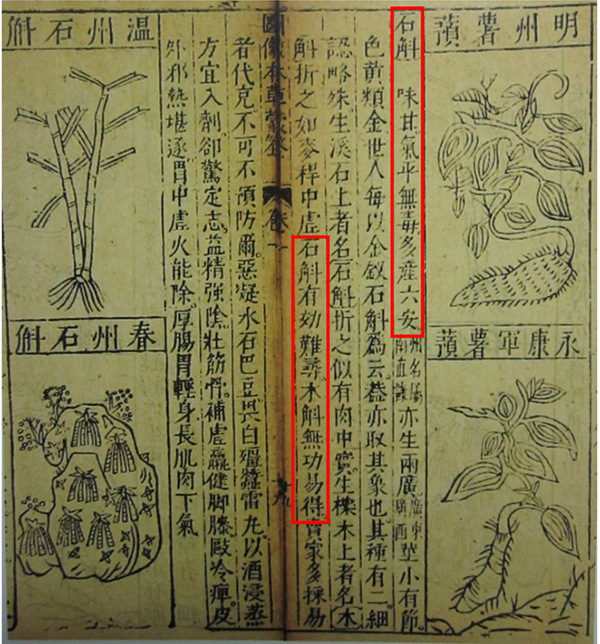 明州薯蕷
永康軍薯蕷
石斛 味甘氣平無毒多産六安州名屬南直隸亦生兩廣廣東廣西莖小有節
色黃類金世人每以金釵石斛爲云蓋亦取其象也其種有二細
認略殊生溪石上者名石斛折之似有肉中實生櫟木上者名木
斛折之如麥稈中虛石斛有効難尋木斛無功易得賣家多採易
圖像本草蒙筌 卷一
者代克不可不預防爾惡凝水石巴豆畏白殭蠶雷丸以酒浸蒸
方宜入劑卻驚定志益精強陰壯筋骨補虛羸健脚膝敺冷痺皮
外邪熱堪逐胃中虛火能除厚腸胃輕身長肌肉下氣
温州石斛
春州石斛